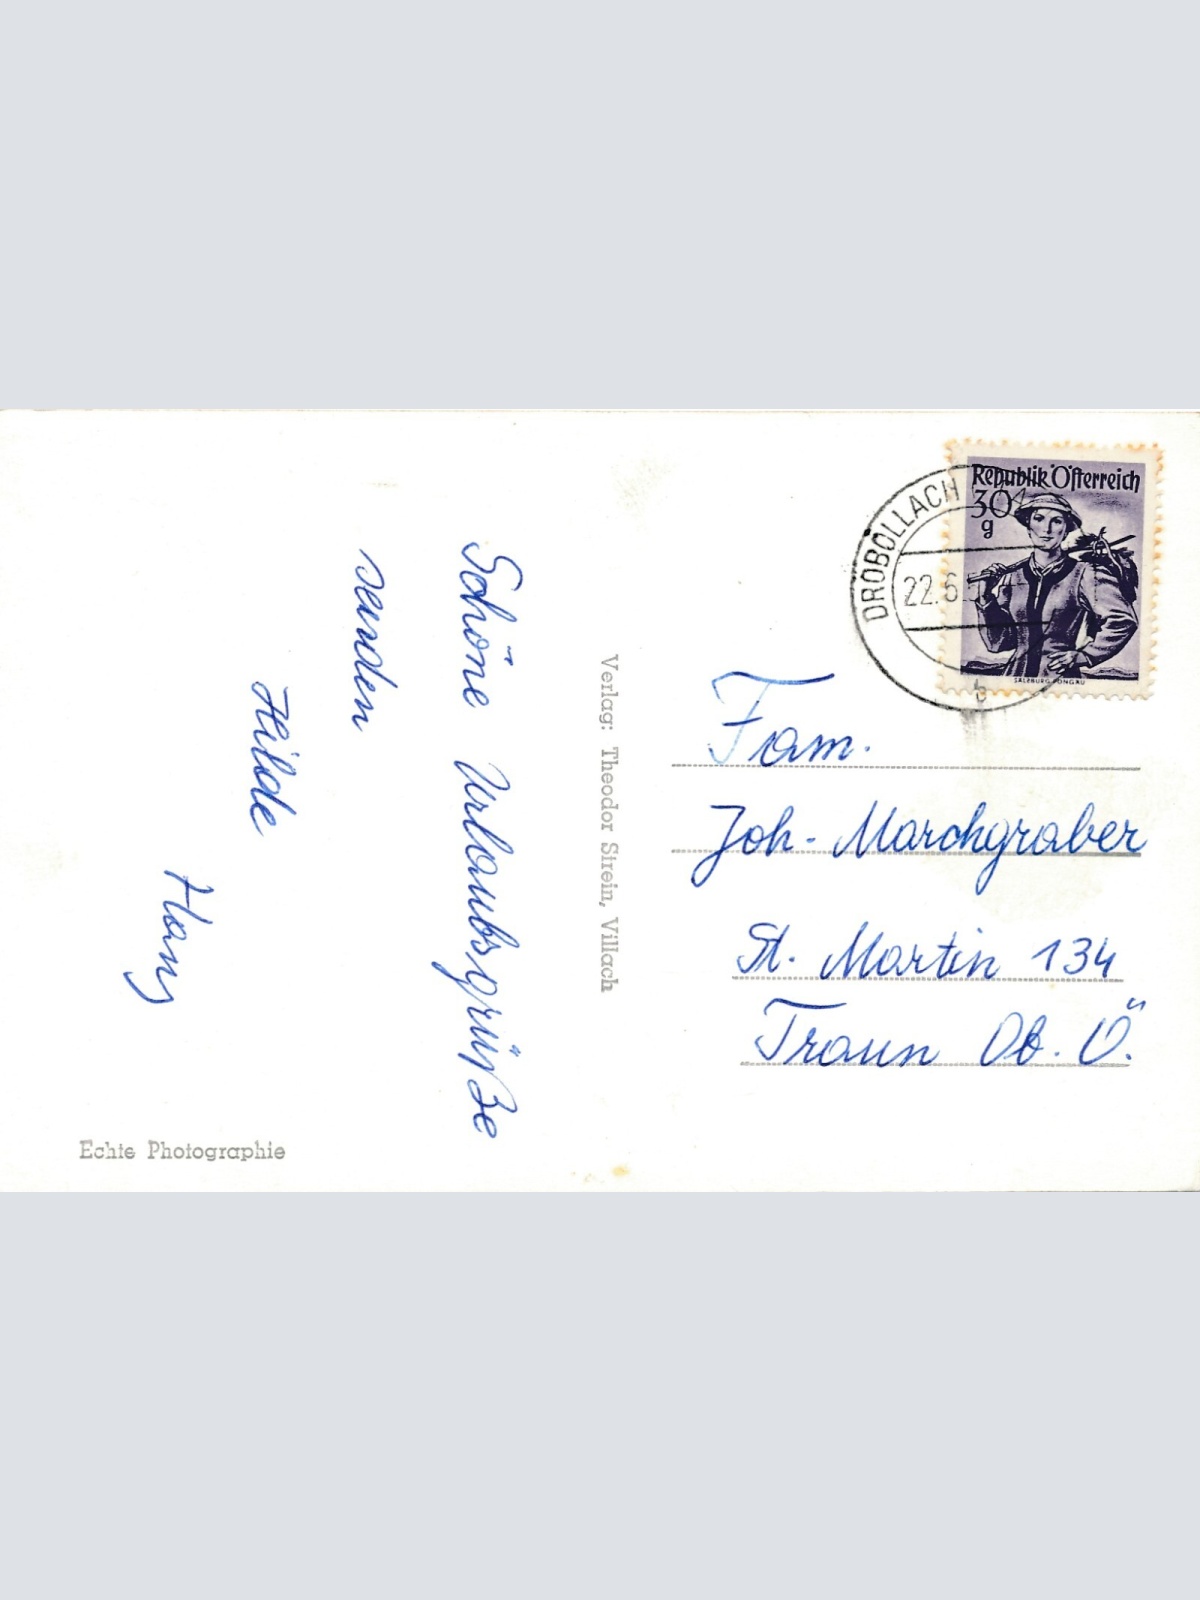 Schöne Urlaubsgrüße
senden
Hilde
Hans
Echte Photographie
Verlag: Theodor Strein, Villach
DROBOLLACH
22.6.5
b
Republik Österreich
30
g
SALZBURG, PONGAU
Fam.
Joh. Marchgraber
St. Martin 134
Traun Ob. Ö.